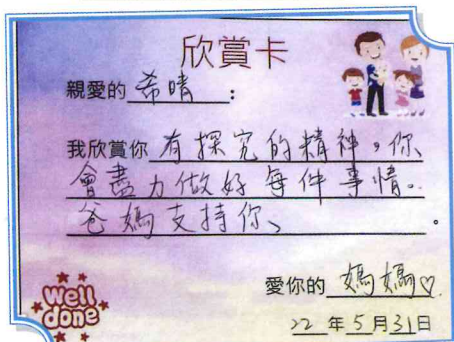 欣賞卡
親愛的 希晴 :
我欣賞你 有探究的精神。你、
會盡力做好每件事情。
爸媽支持你、 。
愛你的 媽媽♡
22 年 5 月 31 日
Well done